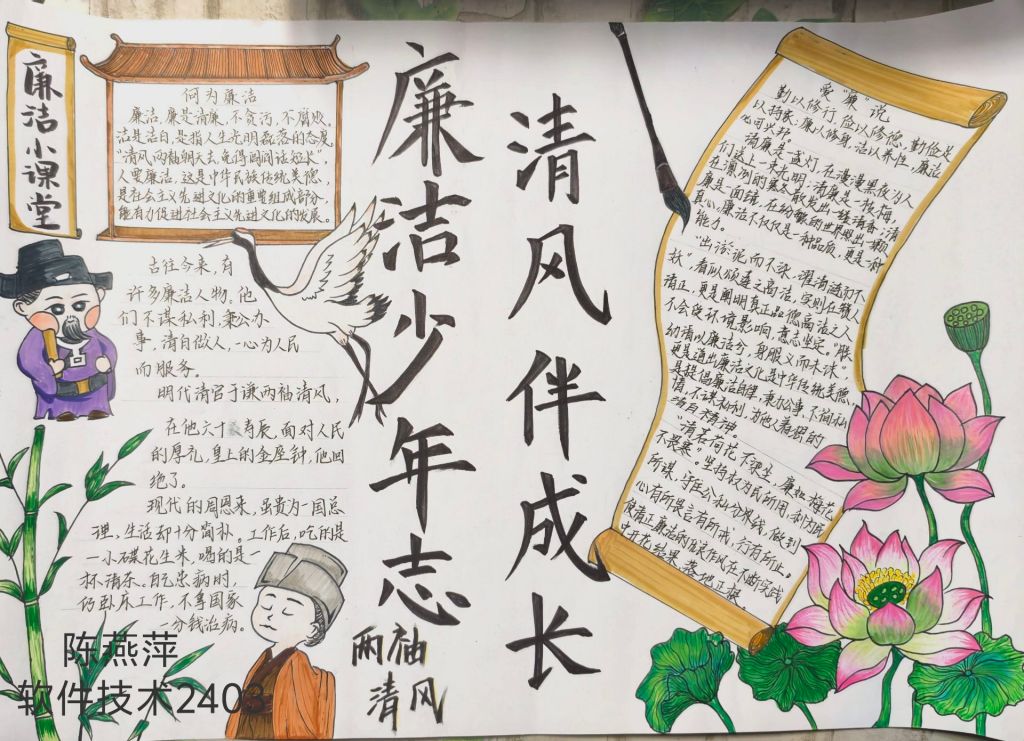 廉洁小课堂
何为廉洁
廉洁,廉是清廉,不贪污,不腐败。
洁是洁白,是指人生光明磊落的态度。
“清风两袖朝天去,免得闾阎话短长”,
人要廉洁,这是中华民族传统美德,
是社会主义先进文化的重要组成部分,
能有力促进社会主义先进文化的发展。
古往今来,有
许多廉洁人物。他
们不谋私利,秉公办
事,清白做人,一心为人民
而服务。
明代清官于谦两袖清风,
在他六十寿辰,面对人民
的厚礼,皇上的金座钟,他回
绝了。
现代的周恩来,虽贵为一国总
理,生活却十分简朴。工作后,吃的是
一小碟花生米,喝的是一
杯清茶。自己患病时,
仍卧床工作,不拿国家
一分钱治病。
廉洁少年志
清风伴成长
两袖
清风
爱“廉”说
勤以修行,俭以修德,勤俭足
以持家,廉以修身,洁以养性,廉洁
也可兴邦。
清廉是一盏灯,在漫漫黑夜为人
们送上一束光明;清廉是一枝梅,
在凛冽的寒冬散发出一缕清香;清
廉是一面镜,在纷繁的世界照出一颗
真心,廉洁不仅仅是一种品质,更是一种
能力。
“出淤泥而不染,濯清涟而不
妖”,看似颂莲之高洁,实则在赞人
清正,更是阐明真正品德高洁之人
不会受环境影响,意志坚定。“朕
幼清以廉洁兮,身服义而未沫”
更是道出廉洁文化是中华传统美德,
是提倡廉洁自律,秉办公事,不徇私
情,不谋私利,为他人着想的
给自大精神。
“清若荷花不染尘,廉如梅花
不畏寒”。坚持权为民所用,利为民
所谋,守住公私分界线,做到
心有所畏,言有所戒,行有所止。
使清正廉洁的优良作风在不断实践
中开花结果,落地正根。
陈燕萍
软件技术2403